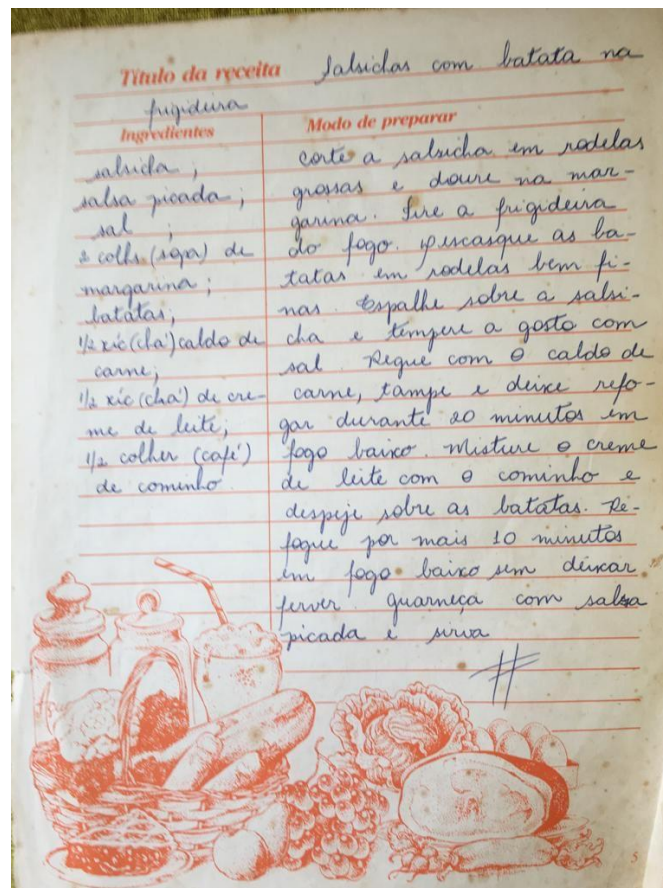 Título da receita Salsichas com batata na
frigideira
Ingredientes
salsicha;
salsa picada;
sal;
2 colhs (sopa) de
margarina;
batatas;
1/2 xíc (chá) caldo de
carne;
1/2 xíc (chá) de cre-
me de leite;
1/2 colher (café)
de cominho
Modo de preparar
corte a salsicha em rodelas
grossas e doure na mar-
garina. Tire a frigideira
do fogo. Descasque as ba-
tatas em rodelas bem fi-
nas. Espalhe sobre a salsi-
cha e tempere a gosto com
sal. Regue com o caldo de
carne, tampe e deixe refo-
gar durante 20 minutos em
fogo baixo. Misture o creme
de leite com o cominho e
despeje sobre as batatas. Re-
fogue por mais 10 minutos
em fogo baixo sem deixar
ferver guarneça com salsa
picada e sirva
5